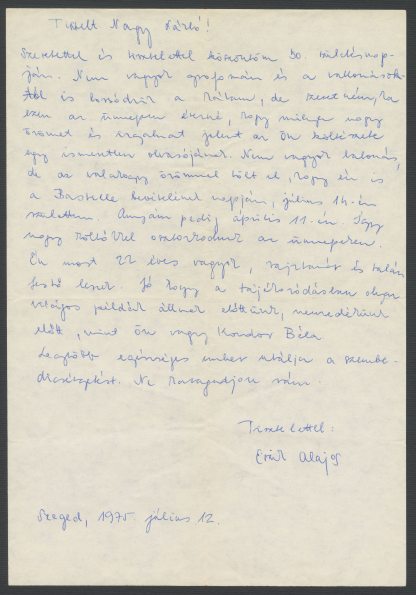 Tisztelt Nagy László!
Szeretettel és tisztelettel köszöntöm 50. születésnap-
ján. Nem vagyok grafomán és a vallomások-
tól is borsódzik a hátam, de szeretném, ha
ezen az ünnepen érezné, hogy milyen nagy
örömet és izgalmat jelent az Ön költészete
egy ismeretlen olvasójának. Nem vagyok babonás,
de az valahogy örömmel tölt el, hogy én is
a Bastille bevételének napján, július 14-én
születtem. Anyám pedig április 11-én. Így
nagy költővel osztozkodunk az ünnepeken.
Én most 22 éves vagyok, rajztanár és talán
festő leszek. Jó hogy a tájékozódásban olyan
világos példák állnak előttünk, nemzedékünk
előtt, mint Ön vagy Kondor Béla.
Legtöbb egészséges ember utálja a szembe-
dicsértetést. Ne haragudjon rám.
Tisztelettel:
Alajos
Szeged, 1975. július 12.